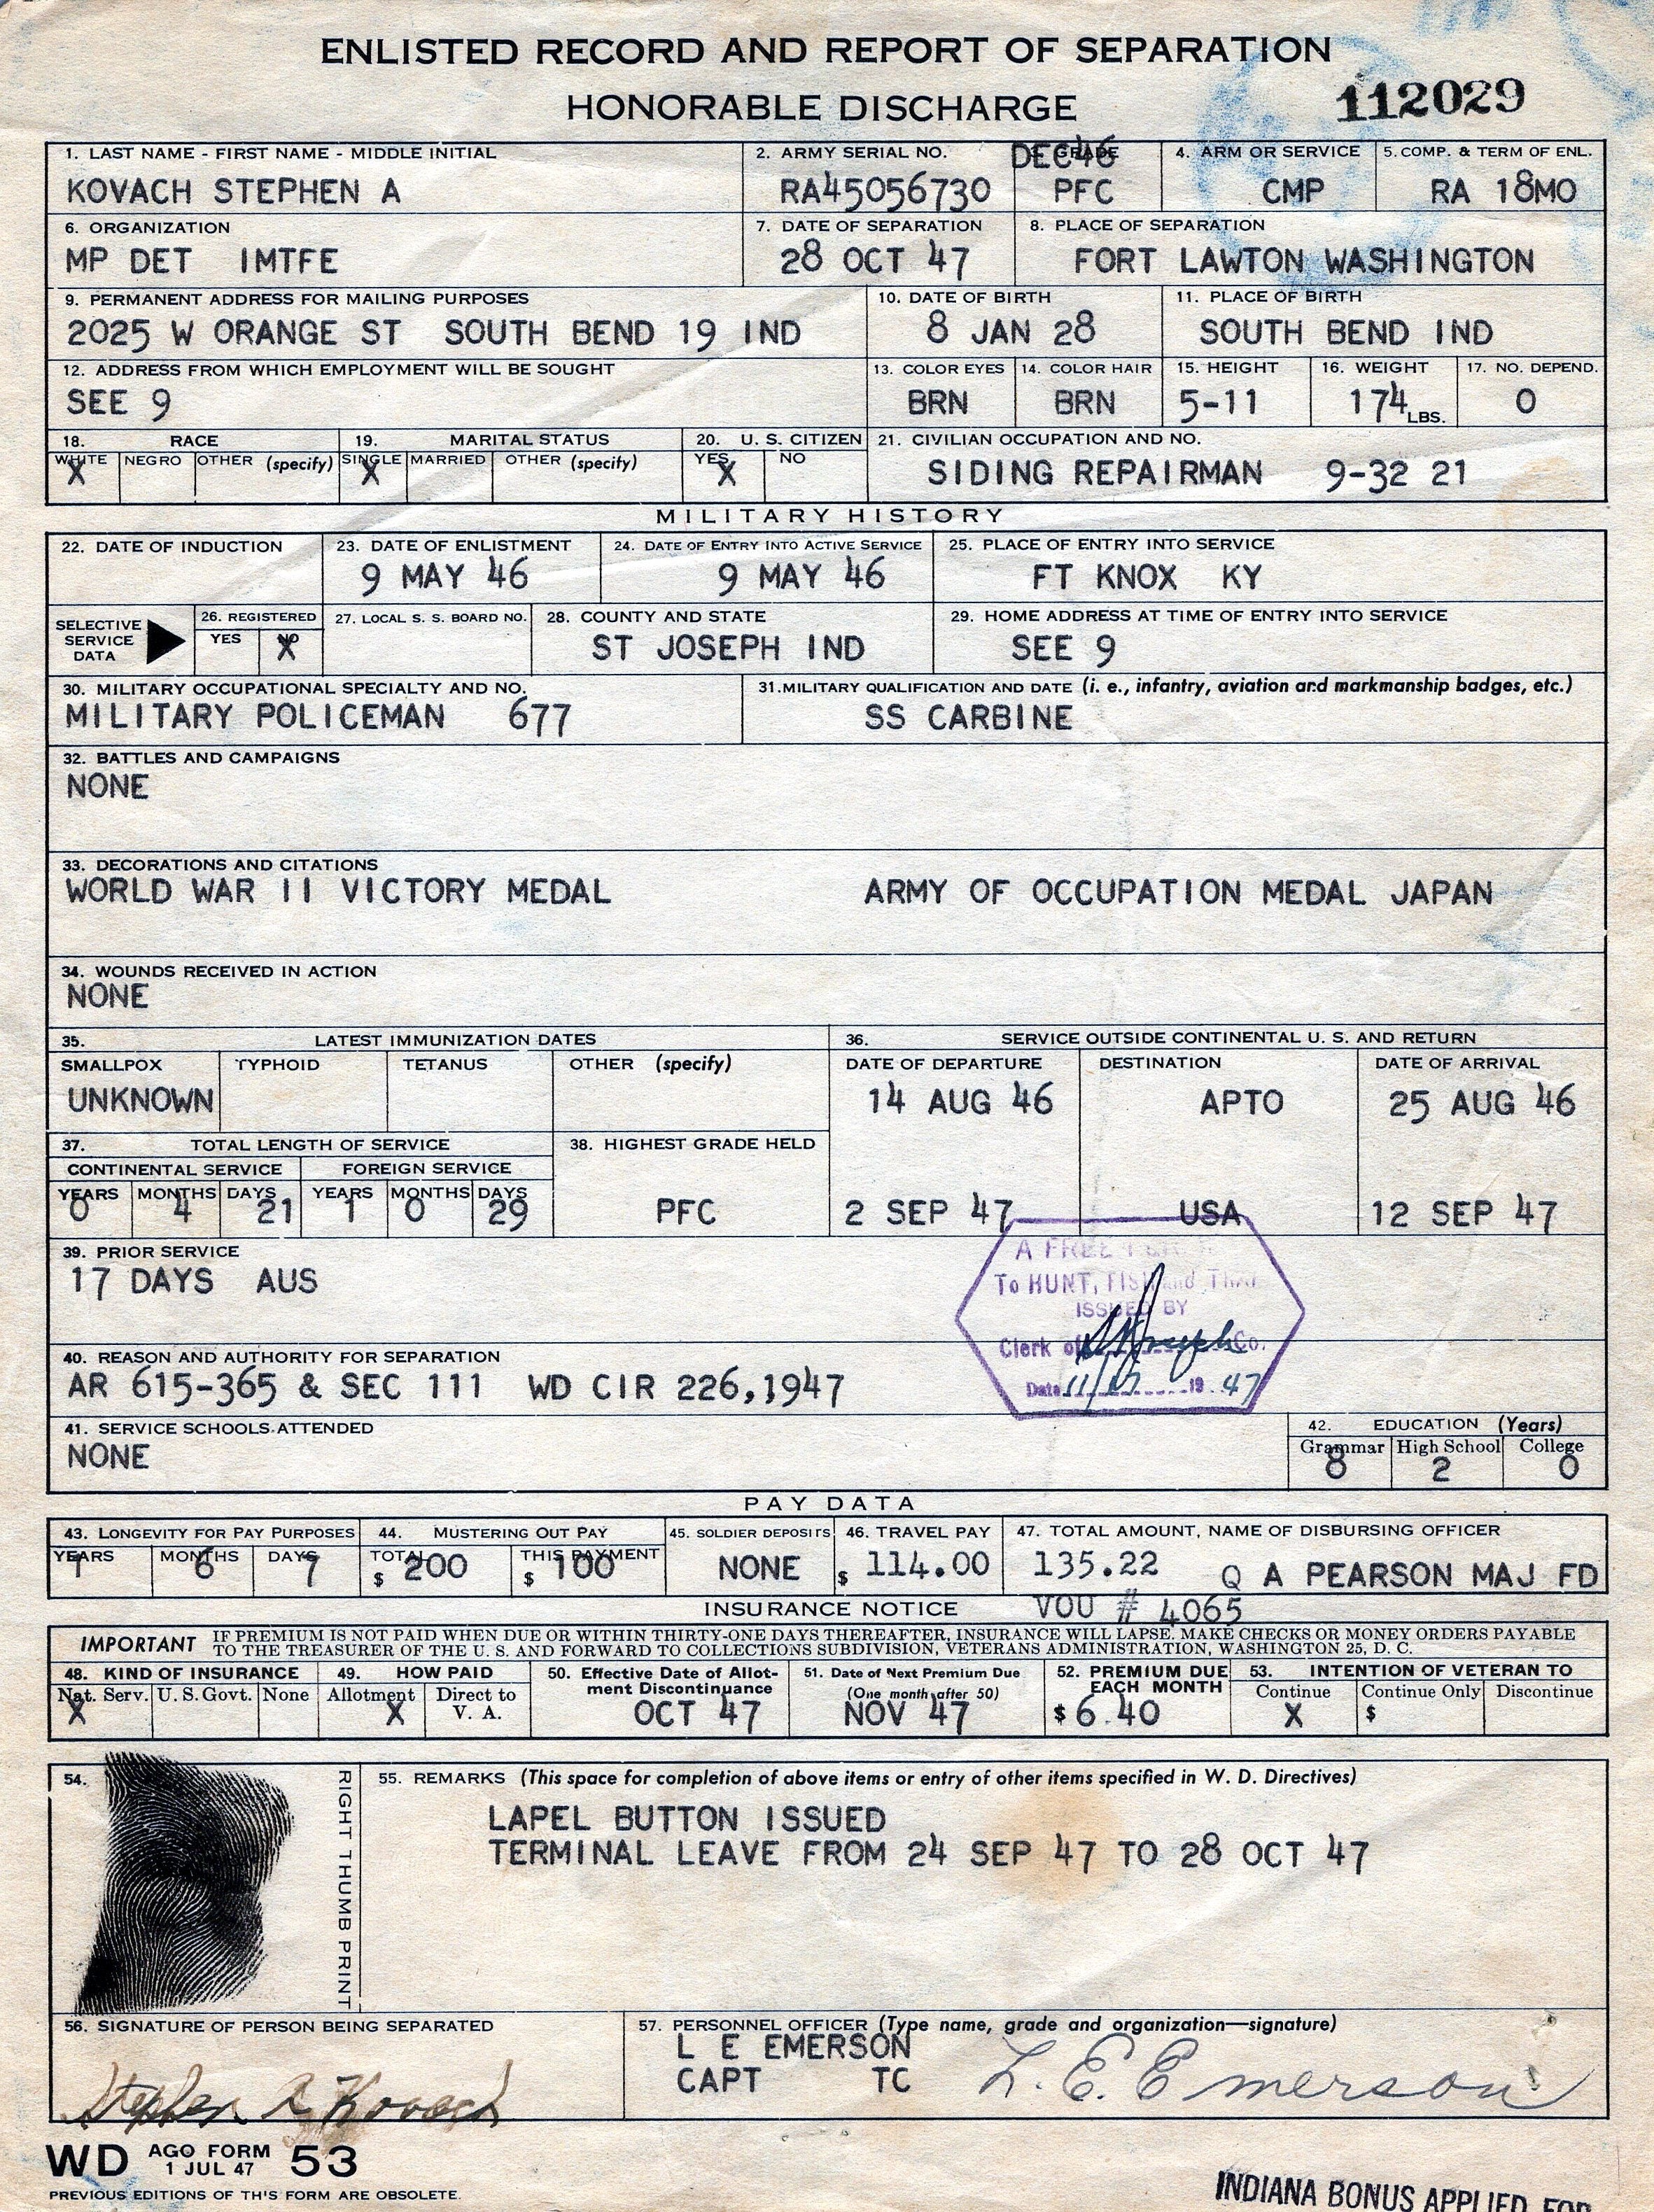 ENLISTED RECORD AND REPORT OF SEPARATION
HONORABLE DISCHARGE
112029
1. LAST NAME - FIRST NAME - MIDDLE INITIAL
KOVACH STEPHEN A
2. ARMY SERIAL NO.
RA45056730
DEC 46
3. GRADE
PFC
4. ARM OR SERVICE
CMP
5. COMP. & TERM OF ENL.
RA 18MO
6. ORGANIZATION
MP DET IMTFE
7. DATE OF SEPARATION
28 OCT 47
8. PLACE OF SEPARATION
FORT LAWTON WASHINGTON
9. PERMANENT ADDRESS FOR MAILING PURPOSES
2025 W ORANGE ST SOUTH BEND 19 IND
10. DATE OF BIRTH
8 JAN 28
11. PLACE OF BIRTH
SOUTH BEND IND
12. ADDRESS FROM WHICH EMPLOYMENT WILL BE SOUGHT
SEE 9
13. COLOR EYES
BRN
14. COLOR HAIR
BRN
15. HEIGHT
5-11
16. WEIGHT
174 LBS.
17. NO. DEPEND.
0
18. RACE
WHITE NEGRO OTHER (specify)
X
19. MARITAL STATUS
SINGLE MARRIED OTHER (specify)
X
20. U. S. CITIZEN
YES NO
X
21. CIVILIAN OCCUPATION AND NO.
SIDING REPAIRMAN 9-32 21
MILITARY HISTORY
22. DATE OF INDUCTION
23. DATE OF ENLISTMENT
9 MAY 46
24. DATE OF ENTRY INTO ACTIVE SERVICE
9 MAY 46
25. PLACE OF ENTRY INTO SERVICE
FT KNOX KY
SELECTIVE
SERVICE
DATA
26. REGISTERED
YES NO
X
27. LOCAL S. S. BOARD NO.
28. COUNTY AND STATE
ST JOSEPH IND
29. HOME ADDRESS AT TIME OF ENTRY INTO SERVICE
SEE 9
30. MILITARY OCCUPATIONAL SPECIALTY AND NO.
MILITARY POLICEMAN 677
31. MILITARY QUALIFICATION AND DATE (i. e., infantry, aviation and markmanship badges, etc.)
SS CARBINE
32. BATTLES AND CAMPAIGNS
NONE
33. DECORATIONS AND CITATIONS
WORLD WAR II VICTORY MEDAL ARMY OF OCCUPATION MEDAL JAPAN
34. WOUNDS RECEIVED IN ACTION
NONE
35. LATEST IMMUNIZATION DATES
SMALLPOX TYPHOID TETANUS OTHER (specify)
UNKNOWN
36. SERVICE OUTSIDE CONTINENTAL U. S. AND RETURN
DATE OF DEPARTURE DESTINATION DATE OF ARRIVAL
14 AUG 46 APTO 25 AUG 46
2 SEP 47 USA 12 SEP 47
37. TOTAL LENGTH OF SERVICE
CONTINENTAL SERVICE FOREIGN SERVICE
YEARS MONTHS DAYS YEARS MONTHS DAYS
0 4 21 1 0 29
38. HIGHEST GRADE HELD
PFC
39. PRIOR SERVICE
17 DAYS AUS
A FREE
To HUNT, FISH and
ISSUED BY
Clerk of Co.
Date 11/ 19 47
40. REASON AND AUTHORITY FOR SEPARATION
AR 615-365 & SEC 111 WD CIR 226,1947
41. SERVICE SCHOOLS ATTENDED
NONE
42. EDUCATION (Years)
Grammar High School College
8 2 0
PAY DATA
43. LONGEVITY FOR PAY PURPOSES
YEARS MONTHS DAYS
1 6 7
44. MUSTERING OUT PAY
TOTAL THIS PAYMENT
$ 200 $ 100
45. SOLDIER DEPOSITS
NONE
46. TRAVEL PAY
$ 114.00
47. TOTAL AMOUNT, NAME OF DISBURSING OFFICER
135.22 Q A PEARSON MAJ FD
VOU # 4065
INSURANCE NOTICE
IMPORTANT IF PREMIUM IS NOT PAID WHEN DUE OR WITHIN THIRTY-ONE DAYS THEREAFTER, INSURANCE WILL LAPSE. MAKE CHECKS OR MONEY ORDERS PAYABLE
TO THE TREASURER OF THE U. S. AND FORWARD TO COLLECTIONS SUBDIVISION, VETERANS ADMINISTRATION, WASHINGTON 25, D. C.
48. KIND OF INSURANCE
Nat. Serv. U. S. Govt. None
X
49. HOW PAID
Allotment Direct to V. A.
X
50. Effective Date of Allot-
ment Discontinuance
OCT 47
51. Date of Next Premium Due
(One month after 50)
NOV 47
52. PREMIUM DUE
EACH MONTH
$ 6.40
53. INTENTION OF VETERAN TO
Continue Continue Only Discontinue
X $
54.
RIGHT THUMB PRINT
55. REMARKS (This space for completion of above items or entry of other items specified in W. D. Directives)
LAPEL BUTTON ISSUED
TERMINAL LEAVE FROM 24 SEP 47 TO 28 OCT 47
56. SIGNATURE OF PERSON BEING SEPARATED
Stephen A Kovach
57. PERSONNEL OFFICER (Type name, grade and organization—signature)
L E EMERSON
CAPT TC
L. E. Emerson
WD AGO FORM 53
1 JUL 47
PREVIOUS EDITIONS OF THIS FORM ARE OBSOLETE.
INDIANA BONUS APPLIED FOR